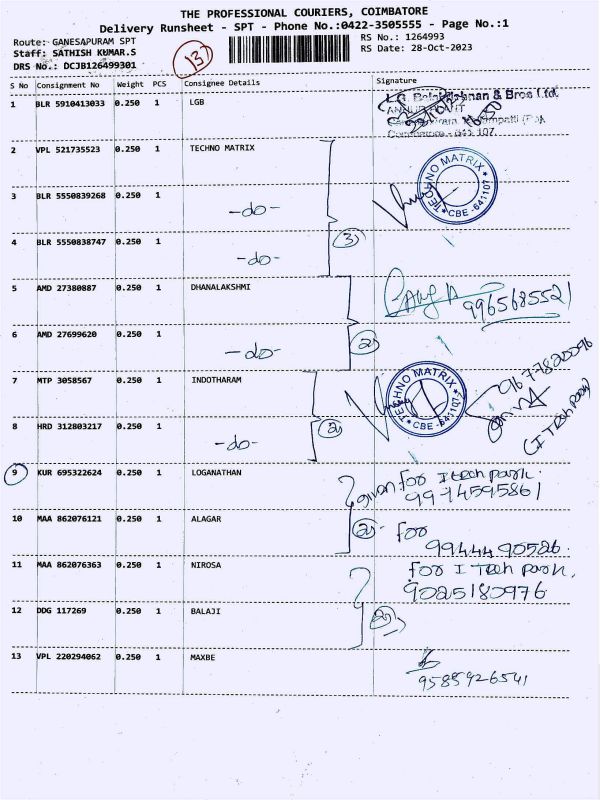 THE PROFESSIONAL COURIERS, COIMBATORE
Delivery Runsheet - SPT - Phone No.:0422-3505555 - Page No.:1
Route: GANESAPURAM SPT
RS No.: 1264993
Staff: SATHISH KUMAR.S
RS Date: 28-Oct-2023
DRS No.: DCJB126499301
13
S No Consignment No Weight PCS Consignee Details Signature
1 BLR 5910413033 0.250 1 LGB
& Bros Ltd.
641 107.
2 VPL 521735523 0.250 1 TECHNO MATRIX
TECHNO MATRIX
CBE - 641107
3 BLR 5550839268 0.250 1 -do-
3
4 BLR 5550838747 0.250 1 -do-
5 AMD 27380887 0.250 1 DHANALAKSHMI
9965685521
6 AMD 27699620 0.250 1 -do-
2
7 MTP 3058567 0.250 1 INDOTHARAM
TECHNO MATRIX
CBE - 641107
8 HRD 312803217 0.250 1 -do-
2
(I Tech park)
9 KUR 695322624 0.250 1 LOGANATHAN
given for I tech park.
9994595861
10 MAA 862076121 0.250 1 ALAGAR
2 for
9944490526.
11 MAA 862076363 0.250 1 NIROSA
for I Tech park,
9025180976
12 DDG 117269 0.250 1 BALAJI
2
13 VPL 220294062 0.250 1 MAXBE
9585926541